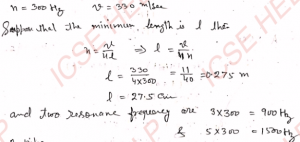 n = 300 Hz    v = 330 m/sec
Suppose that the minimum length is l then
n = v/4l ⇒ l = v/4n
l = 330/4×300 = 11/40 = 0.275 m
l = 27.5 cm
and two resonance freqency are 3×300 = 900 Hz
& 5×300 = 1500 Hz
ICSE HELP
ICSE HELP